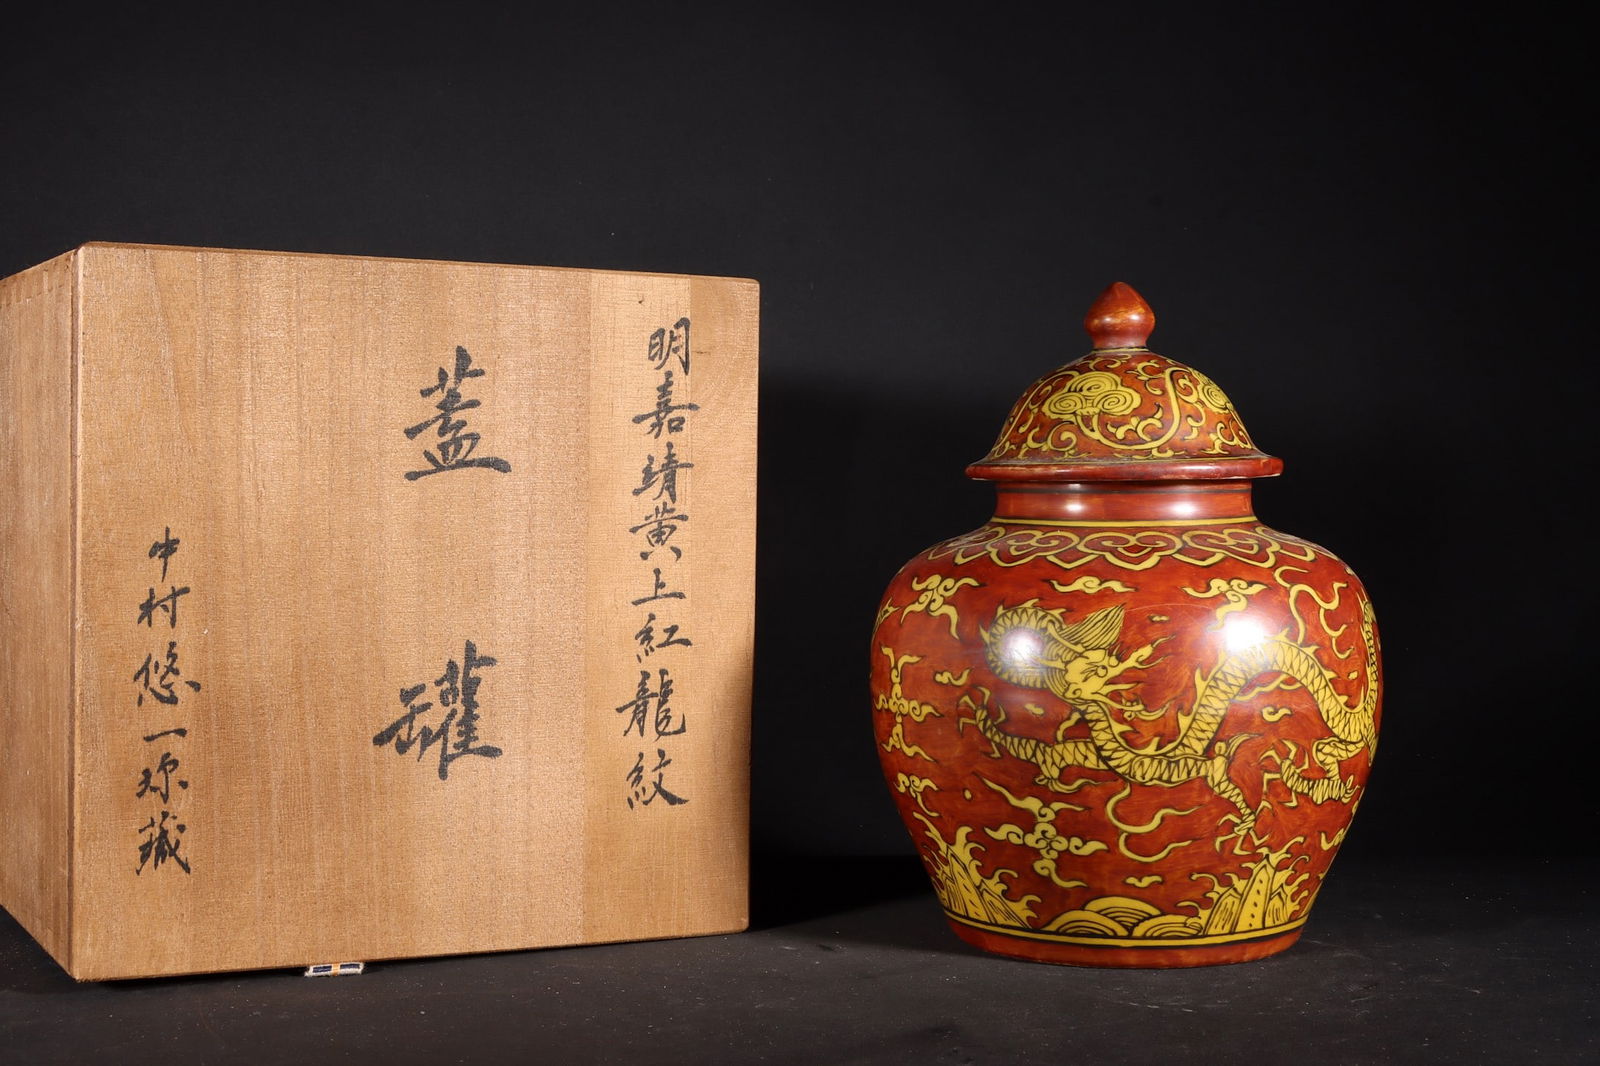 明嘉靖黄上紅龍紋
蓋罐
中村悠一弥藏